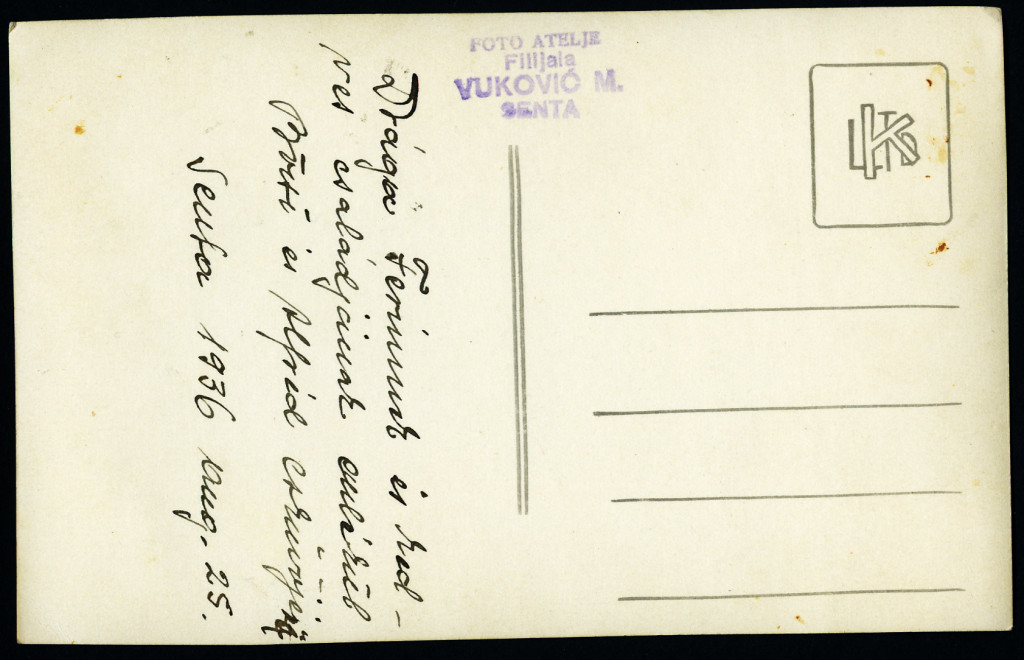 FOTO ATELJE
Filijala
VUKOVIĆ M.
SENTA
Drága Ferinek és ked-
ves családjának emlékül
Böúsi és Alfréd esküvőjéről
Senta 1936 aug. 25.